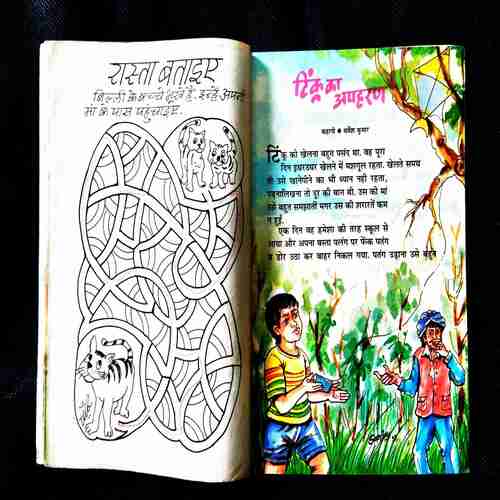 रास्ता बताइए
बिल्ली के बच्चे भूखे हैं. इन्हें अपनी
मां के पास पहुंचाइए.
टिंकू का
अपहरण
कहानी • सर्वेश कुमार
टिंकू को खेलना बहुत पसंद था. वह पूरा
दिन इधरउधर खेलने में मशगूल रहता. खेलते समय
तो उसे खानेपीने का भी ध्यान नहीं रहता,
पढ़नालिखना तो दूर की बात थी. उस की मां
उसे बहुत समझातीं मगर उस की शरारतें कम
न हुईं.
एक दिन वह हमेशा की तरह स्कूल से
आया और अपना बस्ता पलंग पर फेंक पतंग
व डोर उठा कर बाहर निकल गया. पतंग उड़ाना उसे बहुत